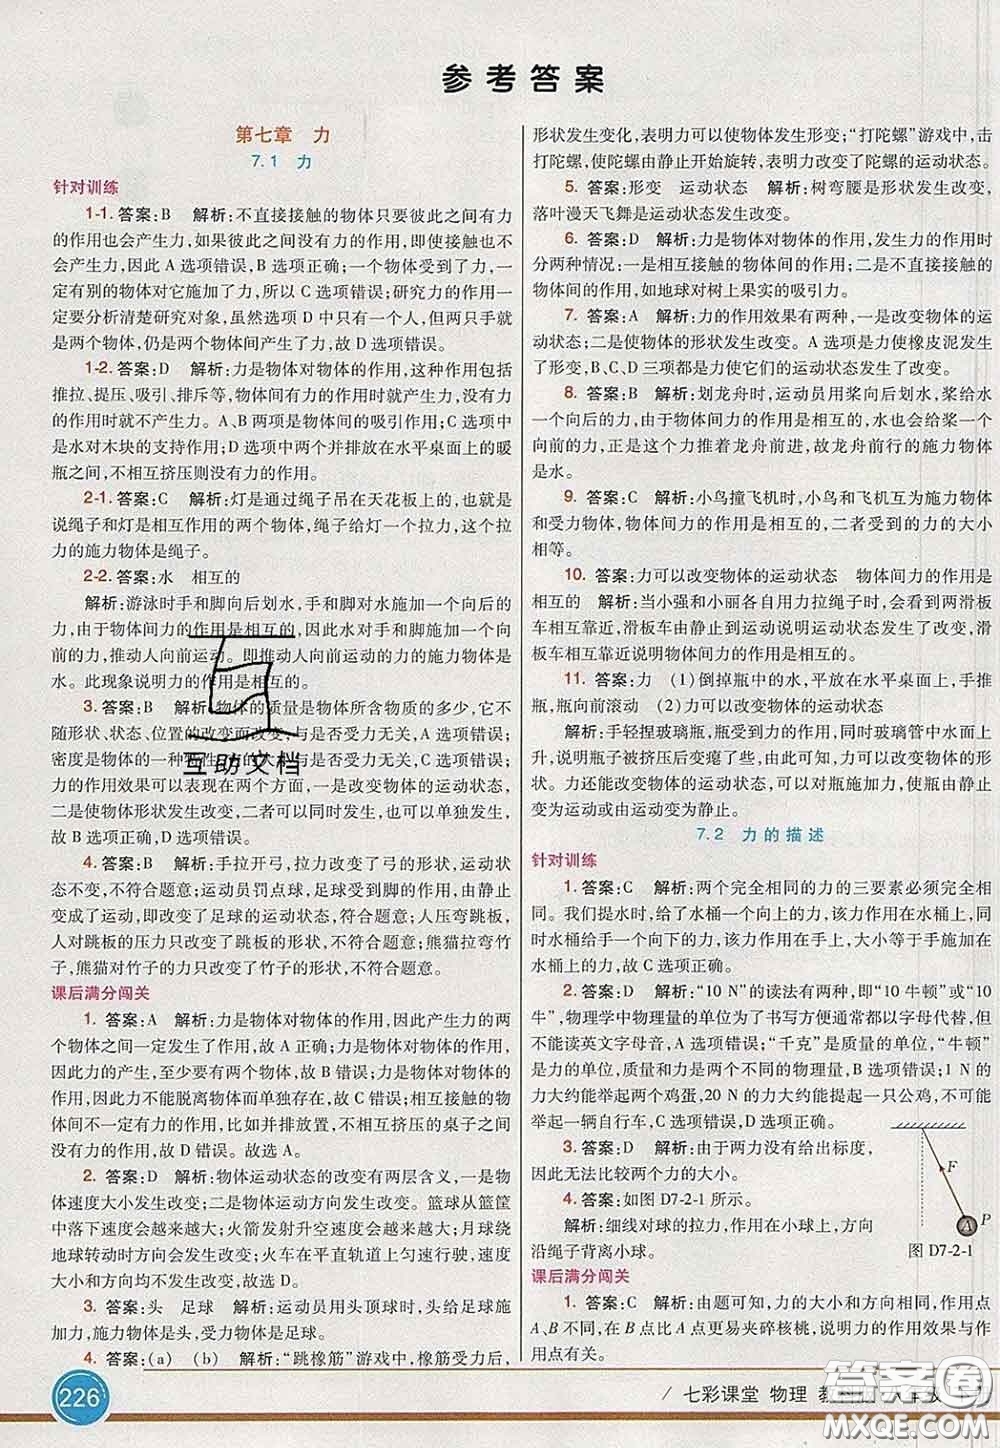 参考答案
第七章 力
7.1 力
针对训练
1-1. 答案:B 解析:不直接接触的物体只要彼此之间有力
的作用也会产生力,如果彼此之间没有力的作用,即使接触也不
会产生力,因此 A 选项错误,B 选项正确;一个物体受到了力,一
定有别的物体对它施加了力,所以 C 选项错误;研究力的作用一
定要分析清楚研究对象,虽然选项 D 中只有一个人,但两只手就
是两个物体,仍是两个物体间产生了力,故 D 选项错误。
1-2. 答案:D 解析:力是物体对物体的作用,这种作用包括
推拉、提压、吸引、排斥等,物体间有这种作用时就发生力,没有这
种作用时就不产生力。A、B 两项是物体间的吸引作用;C 选项中
是水对木块的支持作用;D 选项中两个并排放在水平桌面上的暖
瓶之间,不相互挤压则没有力的作用。
2-1. 答案:C 解析:灯是通过绳子吊在天花板上的,也就是
说绳子和灯是相互作用的两个物体,绳子给灯一个拉力,这个拉
力的施力物体是绳子。
2-2. 答案:水 相互的
解析:游泳时手和脚向后划水,手和脚对水施加一个向后的
力,由于物体间力的作用是相互的,因此水对手和脚施加一个向
前的力,推动人向前运动。即推动人向前运动的力的施力物体是
水。此现象说明力的作用是相互的。
3. 答案:B 解析:物体的质量是物体所含物质的多少,它不
随形状、状态、位置的改变而改变,与是否受力无关,A 选项错误;
密度是物体的一种特性,它的大小与是否受力无关,C 选项错误;
力的作用效果可以表现在两个方面,一是使物体运动状态改变,
二是使物体形状发生改变,二者可以同时发生,也可以单独发生,
故 B 选项正确,D 选项错误。
4. 答案:B 解析:手拉开弓,拉力改变了弓的形状,运动状
态不变,不符合题意;运动员罚点球,足球在脚的作用下,由静止
变成了运动,即改变了足球的运动状态,符合题意;人压弯跳板,
人对跳板的压力只改变了跳板的形状,不符合题意;熊猫拉弯竹
子,熊猫对竹子的力只改变了竹子的形状,不符合题意。
课后满分闯关
1. 答案:A 解析:力是物体对物体的作用,因此产生力的两
个物体间一定发生了作用,故 A 正确;力是物体对物体的作用,
因此力的产生,至少要有两个物体,故 B 错误;力是物体对物体的
作用,因此力不能脱离物体而单独存在,故 C 错误;相互接触的物体
间不一定有力的作用,比如并排放置,不相互挤压的桌子之间没
有力的作用,故 D 错误。故选 A。
2. 答案:D 解析:物体运动状态的改变有两层含义,一是物
体速度大小发生改变;二是物体运动方向发生改变。篮球从篮筐
中落下速度会越来越大;火箭发射升空速度会越来越大;月球绕
地球转动时方向会发生改变;火车在平直轨道上匀速行驶,速度
大小和方向均不发生改变,故选 D。
3. 答案:头 足球 解析:运动员用头顶球时,头给足球施
加力,施力物体是头,受力物体是足球。
4. 答案:(a) (b) 解析:“跳橡筋”游戏中,橡筋受力后,
形状发生变化,表明力可以使物体发生形变;“打陀螺”游戏中,击
打陀螺,使陀螺由静止开始旋转,表明力改变了陀螺的运动状态。
5. 答案:形变 运动状态 解析:树弯腰是形状发生改变,
落叶漫天飞舞是运动状态发生改变。
6. 答案:D 解析:力是物体对物体的作用,发生力的作用时
分两种情况:一是相互接触的物体间的作用;二是不接触的物体
间的作用,如地球对树上果实的吸引力。
7. 答案:A 解析:力的作用效果有两种,一是改变物体的运
动状态;二是使物体的形状发生改变。A 选项是力使橡皮泥发生
了形变,B、C、D 三项都是力使它们的运动状态发生了改变。
8. 答案:B 解析:划龙舟时,运动员用桨向后划水,桨给水
一个向后的力,由于物体间力的作用是相互的,水也会给桨一个
向前的力。正是这个力推着龙舟前进,故龙舟前行的施力物体
是水。
9. 答案:C 解析:小鸟撞飞机时,小鸟和飞机互为施力物体
和受力物体,物体间力的作用是相互的,二者受到的力的大小
相等。
10. 答案:力可以改变物体的运动状态 物体间力的作用是
相互的 解析:当小强和小丽各自用力拉绳子时,会看到两滑板
车相互靠近,滑板车由静止到运动说明运动状态发生了改变,两
滑板车相互靠近说明物体间力的作用是相互的。
11. 答案:力 (1)倒掉瓶中的水,平放在水平桌面上,手推
瓶,瓶向前滚动 (2)力可以改变物体的运动状态
解析:手轻捏玻璃瓶,瓶内水面上升,同时玻璃管中水面上
升,说明瓶子被挤压后变瘪了一些,由此可以说明力能使物体形
变。力还能改变物体的运动状态,例如施加力,使瓶由静止
变为运动或由运动变为静止。
7.2 力的描述
针对训练
1. 答案:C 解析:两个完全相同的力的三要素必须完全相
同。我们提水时,给了水桶一个向上的力,该力作用在水桶上,同
时水桶给手一个向下的力,该力作用在手上,大小等于手施加在
水桶上的力,故 C 选项正确。
2. 答案:D 解析:“10 N”的读法有两种,即“10 牛顿”或“10
牛”,物理学中物理量的单位为了书写方便通常都以字母代替,但
不能读英文字母音,A 选项错误;“千克”是质量的单位,“牛顿”
是力的单位,质量与力是两个不同的物理量,B 选项错误;1 N 的
力大约能举起两个鸡蛋,20 N 的力大约能提起一只公鸡,不可能
举起一辆自行车,C 选项错误,D 选项正确。
3. 答案:D 解析:由于两力没有给出标度,
因此无法比较两个力的大小。
4. 答案:如图 D7-2-1 所示。
解析:细线对球的拉力,作用在小球上,方向
沿绳子背离小球。
F
A
P
图 D7-2-1
课后满分闯关
1. 答案:C 解析:由题可知,力的大小和方向相同,作用点
A、B 不同,在 B 点比 A 点更易夹碎核桃,说明力的作用效果与作
用点有关。
互助文档
226
七彩课堂 物理
答案圈
MXQE.COM